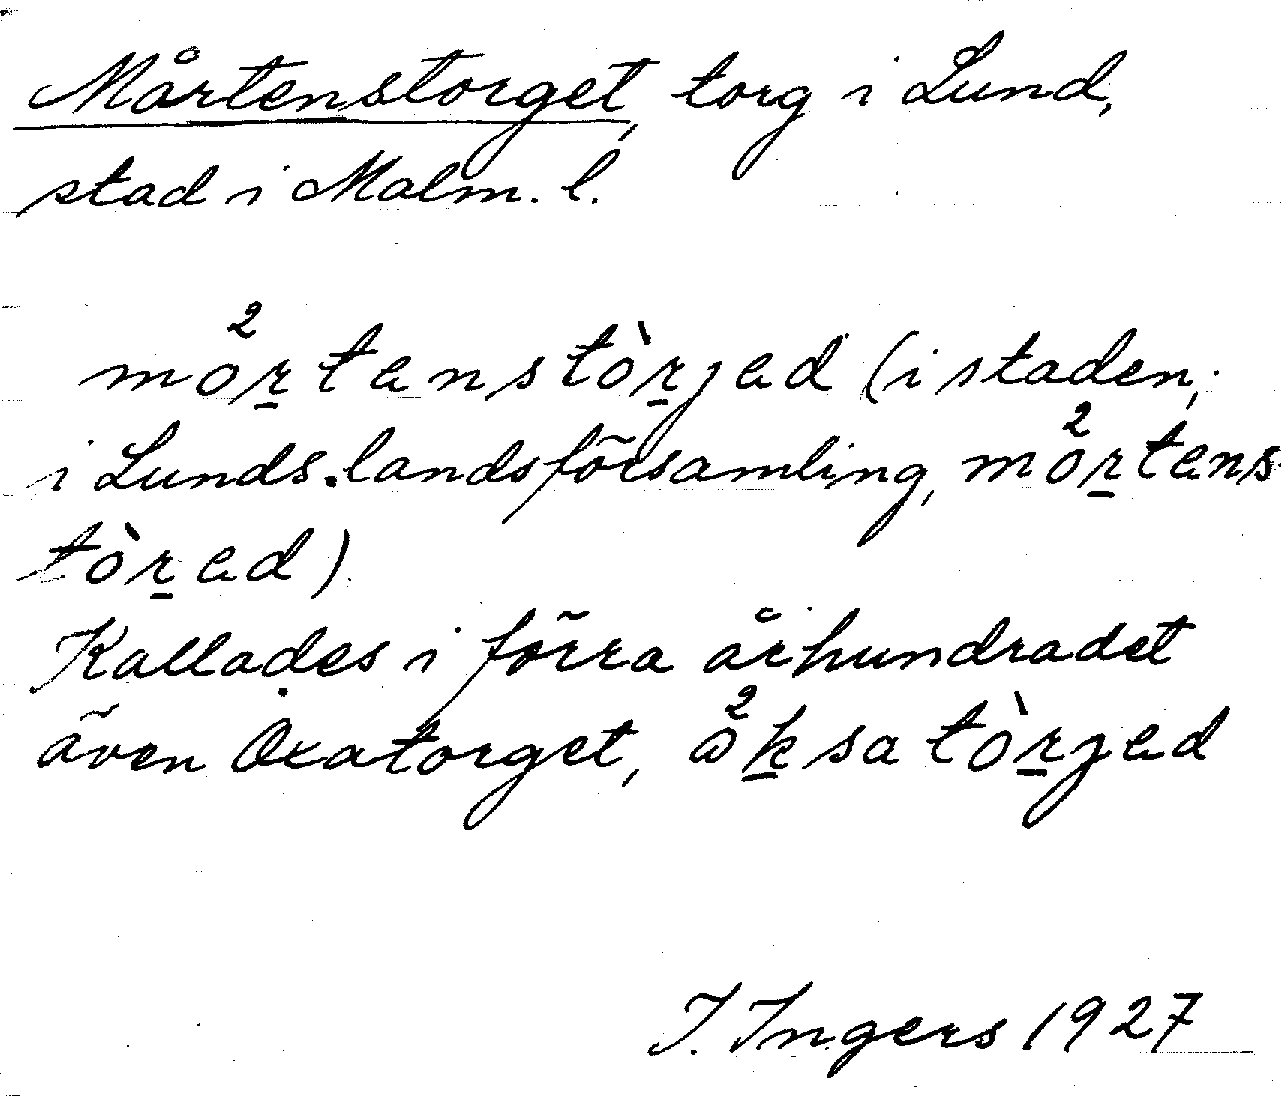 Mårtenstorget, torg i Lund,
stad i Malm. l.
mo²r̲tanstòr̲jad (i staden;
i Lunds landsförsamling, mo²r̲tans
tòr̲ad)
Kallades i förra århundradet
även Oxatorget, ɷ²k̲satòr̲jad
I. Ingers 1927